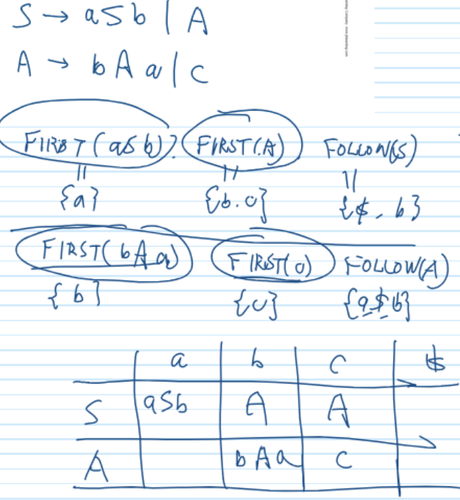 S → aSb | A
A → bAa | c
FIRST(aSb)? FIRST(A) FOLLOW(S)
{a} {b.c} {$, b}
FIRST(bAa) FIRST(c) FOLLOW(A)
{b} {c} {a$b}
a b c $
S aSb A A
A bAa c